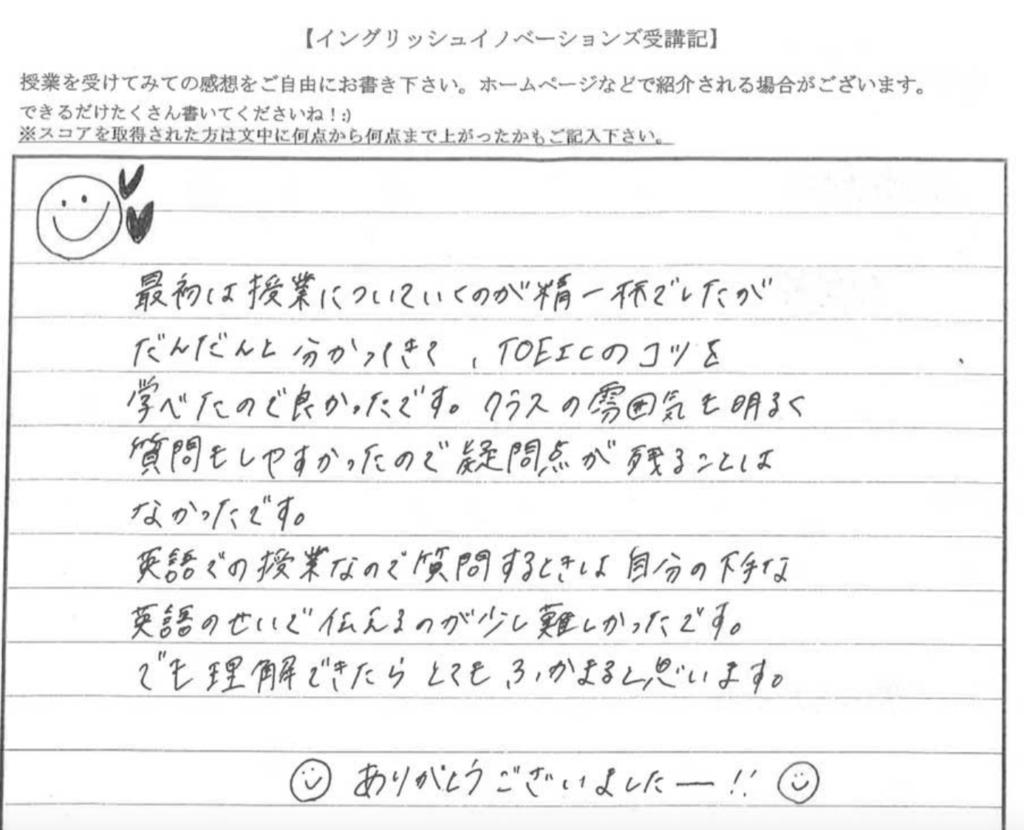 【イングリッシュイノベーションズ受講記】
授業を受けてみての感想をご自由にお書き下さい。ホームページなどで紹介される場合がございます。
できるだけたくさん書いてくださいね！:)
※スコアを取得された方は文中に何点から何点まで上がったかもご記入下さい。
最初は授業についていくのが精一杯でしたが
だんだんと分かってきて、TOEICのコツを
学べたので良かったです。クラスの雰囲気も明るく
質問もしやすかったので疑問点が残ることは
なかったです。
英語での授業なので質問するときは自分の下手な
英語のせいで伝えるのが少し難しかったです。
でも理解できたらとてもふかまると思います。
ありがとうございましたー!!